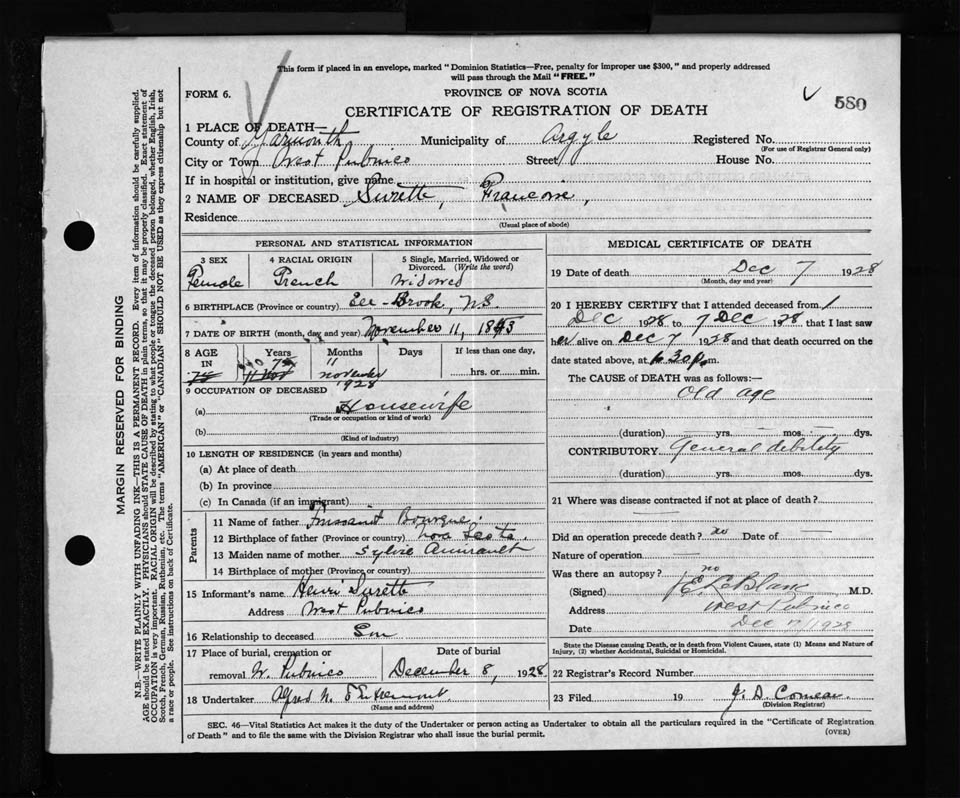 This form if placed in an envelope, marked "Dominion Statistics—Free, penalty for improper use $300," and properly addressed
will pass through the Mail "FREE."
FORM 6.
PROVINCE OF NOVA SCOTIA
580
CERTIFICATE OF REGISTRATION OF DEATH
1 PLACE OF DEATH—
County of Yarmouth Municipality of Argyle Registered No.
(For use of Registrar General only)
City or Town West Pubnico Street House No.
If in hospital or institution, give name
2 NAME OF DECEASED Surette, Francoise,
Residence
(Usual place of abode)
PERSONAL AND STATISTICAL INFORMATION
3 SEX 4 RACIAL ORIGIN 5 Single, Married, Widowed or
Divorced. (Write the word)
Female French Widowed
6 BIRTHPLACE (Province or country) Eel-Brook, N.S
7 DATE OF BIRTH (month, day and year) November 11, 1853
8 AGE Years Months Days If less than one day,
IN 75 11
november hrs. or min.
1928
9 OCCUPATION OF DECEASED
(a) Housewife
(Trade or occupation or kind of work)
(b)
(Kind of industry)
10 LENGTH OF RESIDENCE (in years and months)
(a) At place of death
(b) In province
(c) In Canada (if an immigrant)
Parents
11 Name of father Bourque
12 Birthplace of father (Province or country) Nova Scotia
13 Maiden name of mother Sylvie Amirault
14 Birthplace of mother (Province or country)
15 Informant's name Henri Surette
Address West Pubnico
16 Relationship to deceased Son
17 Place of burial, cremation or Date of burial
removal W. Pubnico December 8, 1928
18 Undertaker Alfred N. d'Entremont
(Name and address)
MEDICAL CERTIFICATE OF DEATH
19 Date of death Dec 7 1928
(Month, day and year)
20 I HEREBY CERTIFY that I attended deceased from 1
Dec 1928 to 7 Dec 1928 that I last saw
her alive on Dec 7 1928 and that death occurred on the
date stated above, at 6.30 p.m.
The CAUSE of DEATH was as follows:
Old age
(duration) yrs. mos. dys.
CONTRIBUTORY General debility
(duration) yrs. mos. dys.
21 Where was disease contracted if not at place of death?
Did an operation precede death? no Date of
Nature of operation
Was there an autopsy? no
(Signed) E. LeBlanc M.D.
Address West Pubnico
Date Dec 7/1928
State the Disease causing Death, or in death from Violent Causes, state (1) Means and Nature of
Injury, (2) whether Accidental, Suicidal or Homicidal.
22 Registrar's Record Number
23 Filed 19 J. D. Comeau
(Division Registrar)
SEC. 46—Vital Statistics Act makes it the duty of the Undertaker or person acting as Undertaker to obtain all the particulars required in the "Certificate of Registration
of Death" and to file the same with the Division Registrar who shall issue the burial permit.
(OVER)
MARGIN RESERVED FOR BINDING
N.B.—WRITE PLAINLY WITH UNFADING INK—THIS IS A PERMANENT RECORD. Every item of information should be carefully supplied.
AGE should be stated EXACTLY. PHYSICIANS should STATE CAUSE OF DEATH in plain terms, so that it may be properly classified. Exact statement of
OCCUPATION is very important. RACIAL ORIGIN will be described by stating to what people or tongue the deceased person belonged, whether English, Irish,
Scotch, French, German, Russian, Ruthenian, etc. The terms "AMERICAN" or "CANADIAN" SHOULD NOT BE USED as they express citizenship but not
a race or people. See instructions on back of Certificate.